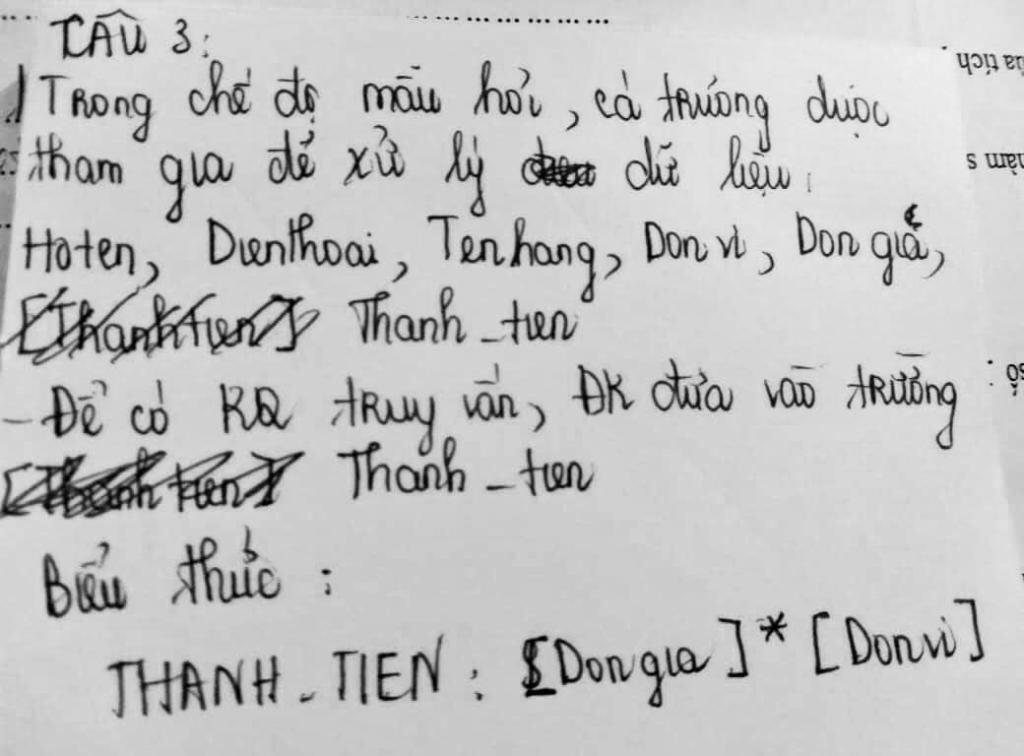 CÂU 3:
Trong chế độ mẫu hỏi, cá trường được
tham gia để xử lý dữ liệu:
Hoten, Dienthoai, Tenhang, Donvi, Dongia,
[Thanhtien] Thanh_tien
- Để có KQ truy vấn, ĐK đưa vào trường
[Thanhtien] Thanh_tien
Biểu thức :
THANH_TIEN : [Dongia] * [Donvi]